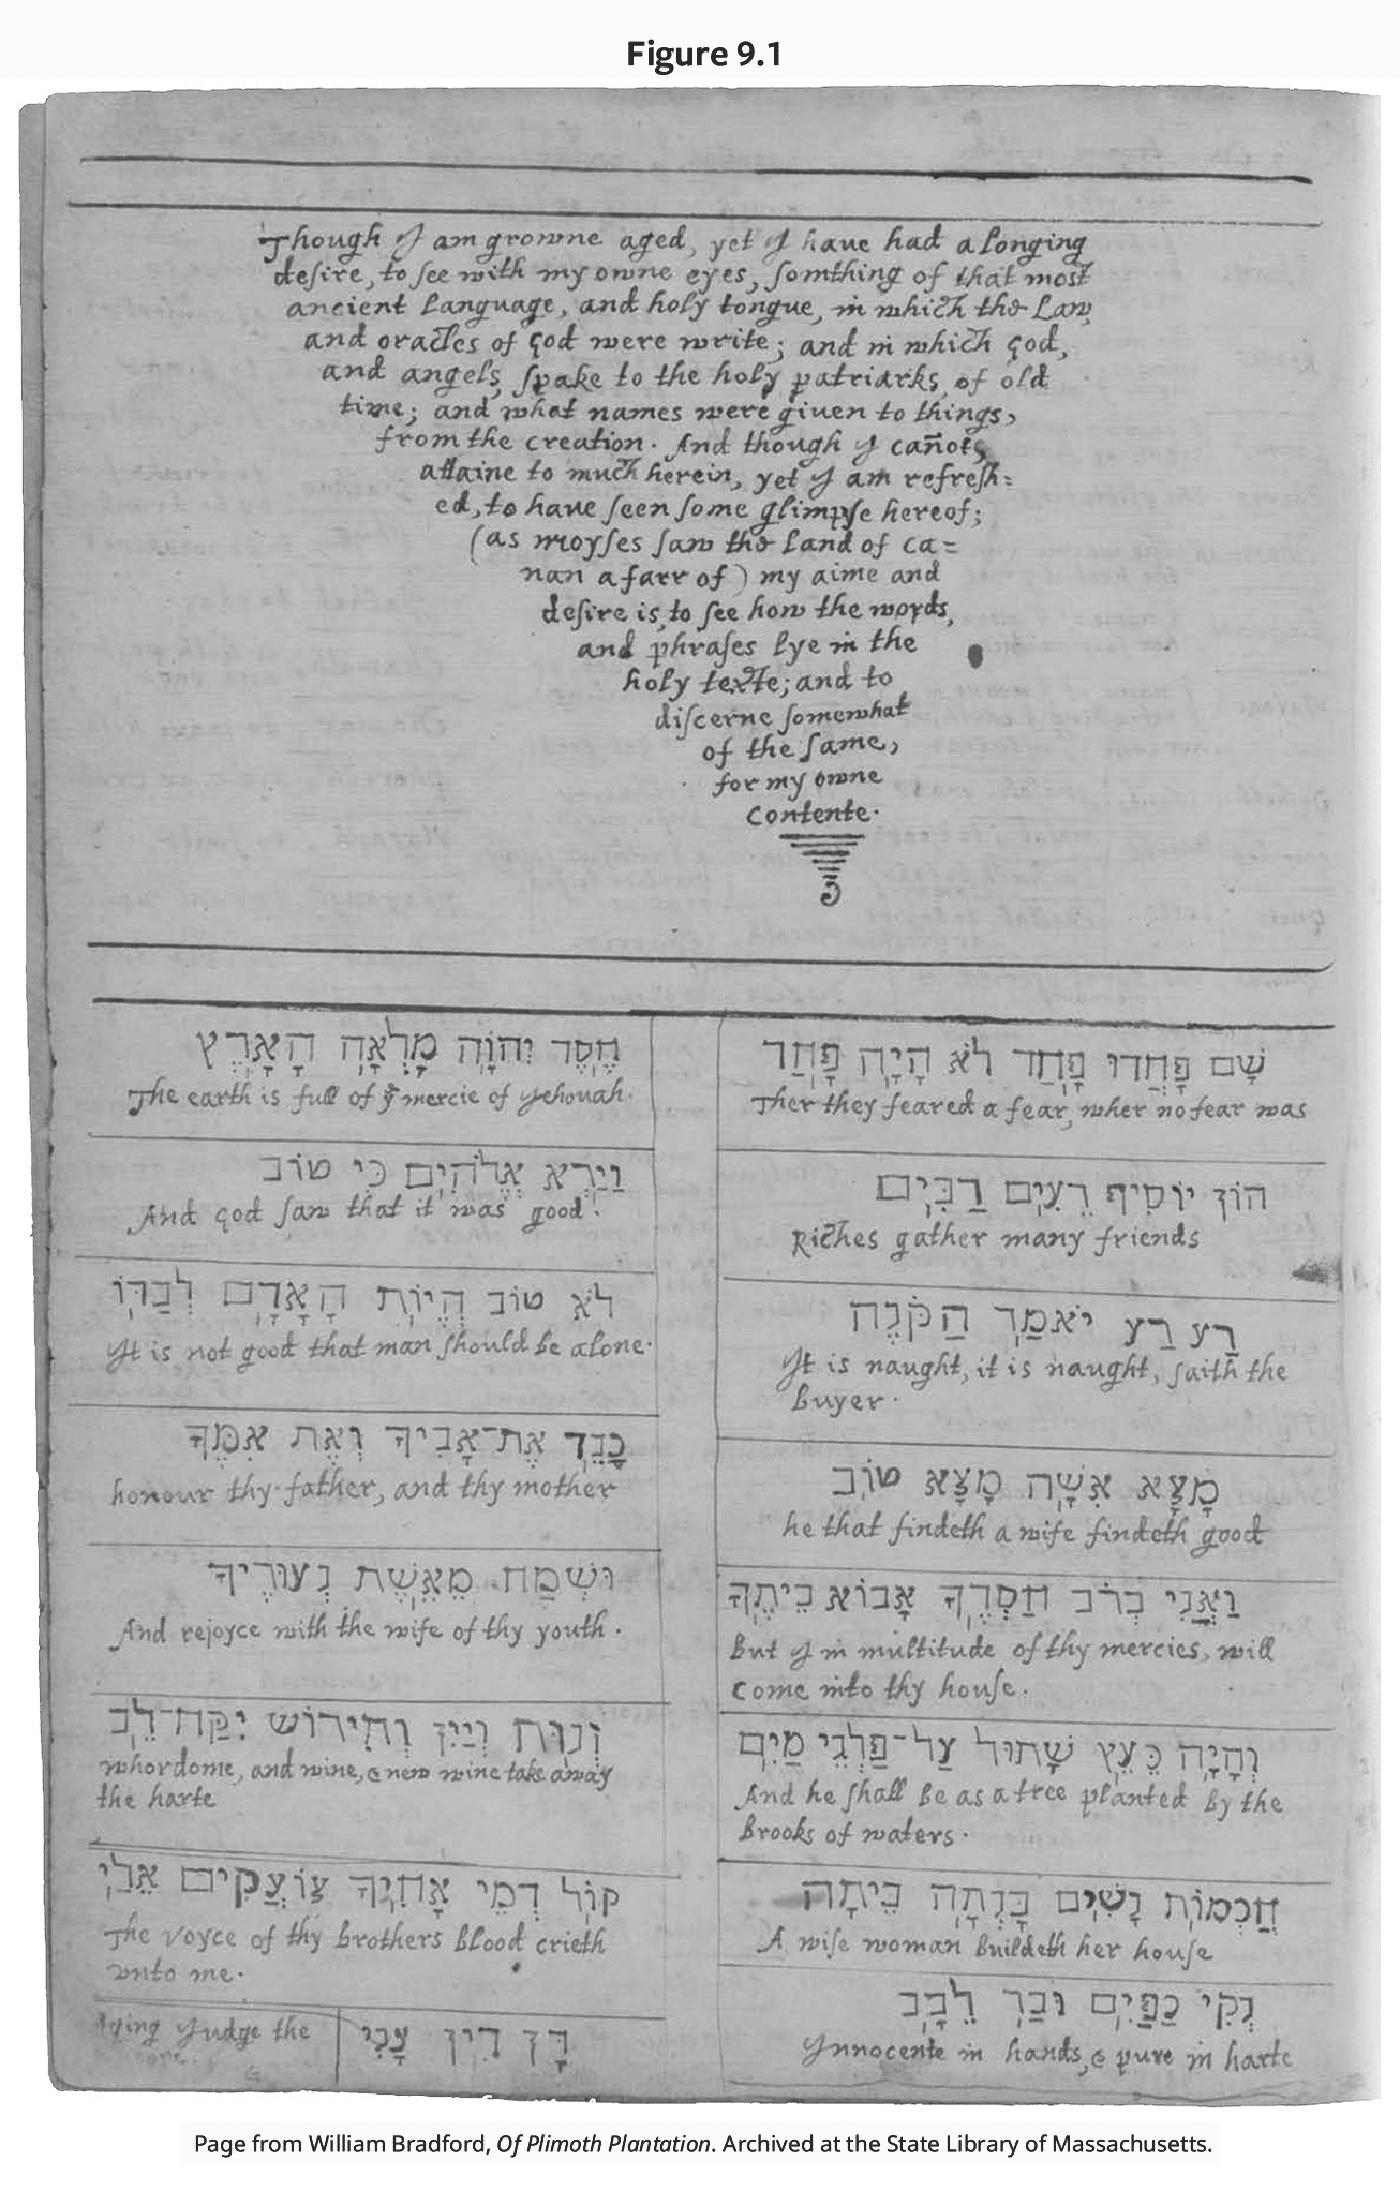 Figure 9.1
Though I am growne aged, yet I haue had a longing
desire, to see with my owne eyes, somthing of that most
ancient language, and holy tongue, in which the Law,
and oracles of God were write; and in which God,
and angels, spake to the holy patriarks, of old
time; and what names were giuen to things,
from the creation. And though I cañot
attaine to much herein, yet I am refresh=
ed, to haue seen some glimpse hereof;
(as moyses saw the land of ca=
nan a farr of) my aime and
desire is, to see how the words,
and phrases lye in the
holy texte; and to
discerne somewhat
of the same,
for my owne
contente.
חֶסֶד יְהוָֹה מָלְאָה הָאָרֶץ
The earth is full of ye mercie of Jehouah.
וַיַרְא אֱלֹהִים כִּי טוֹב
And God saw that it was good.
לֹא טוֹב הֱיוֹת הָאָדָם לְבַדּוֹ
It is not good that man should be alone.
כָּבֵד אֶת־אָבִיךָ וְאֶת אִמֶּךָ
honour thy father, and thy mother
וּשְׂמַח מֵאֵשֶׁת נְעוּרֶיךָ
And rejoyce with the wife of thy youth.
זְנוּת וְיַיִן וְתִירוֹשׁ יִקַּח־לֵב
whordome, and wine, & new wine take away
the harte
קוֹל דְמֵי אָחִיךָ צוֹעֲקִים אֵלַי
The voyce of thy brothers blood crieth
vnto me.
Judge the
דָן דִין עָנִי
שָׁם פָּחֲדוּ פָּחַד לֹא הָיָה פָּחַד
Ther they feared a fear, wher no fear was
הוֹן יוֹסִיף רֵעִים רַבִּים
Riches gather many friends
רַע רַע יֹאמַר הַקֹּנֶה
It is naught, it is naught, saith the
buyer.
מָצָא אִשָּׁה מָצָא טוֹב
he that findeth a wife findeth good
וַאֲנִי בְּרֹב חַסְדֶךָ אָבוֹא בֵיתֶךָ
But I in multitude of thy mercies, will
come into thy house.
וְהָיָה כְּעֵץ שָׁתוּל עַל־פַּלְגֵי מַיִם
And he shall be as a tree planted by the
brooks of waters.
חֲכְמוֹת נָשִׁים בָּנְתָה בֵיתָה
A wise woman buildeth her house
נְקִי כַפַּיִם וּבַר לֵבָב
Innocente in hands, & pure in harte
Page from William Bradford, Of Plimoth Plantation. Archived at the State Library of Massachusetts.